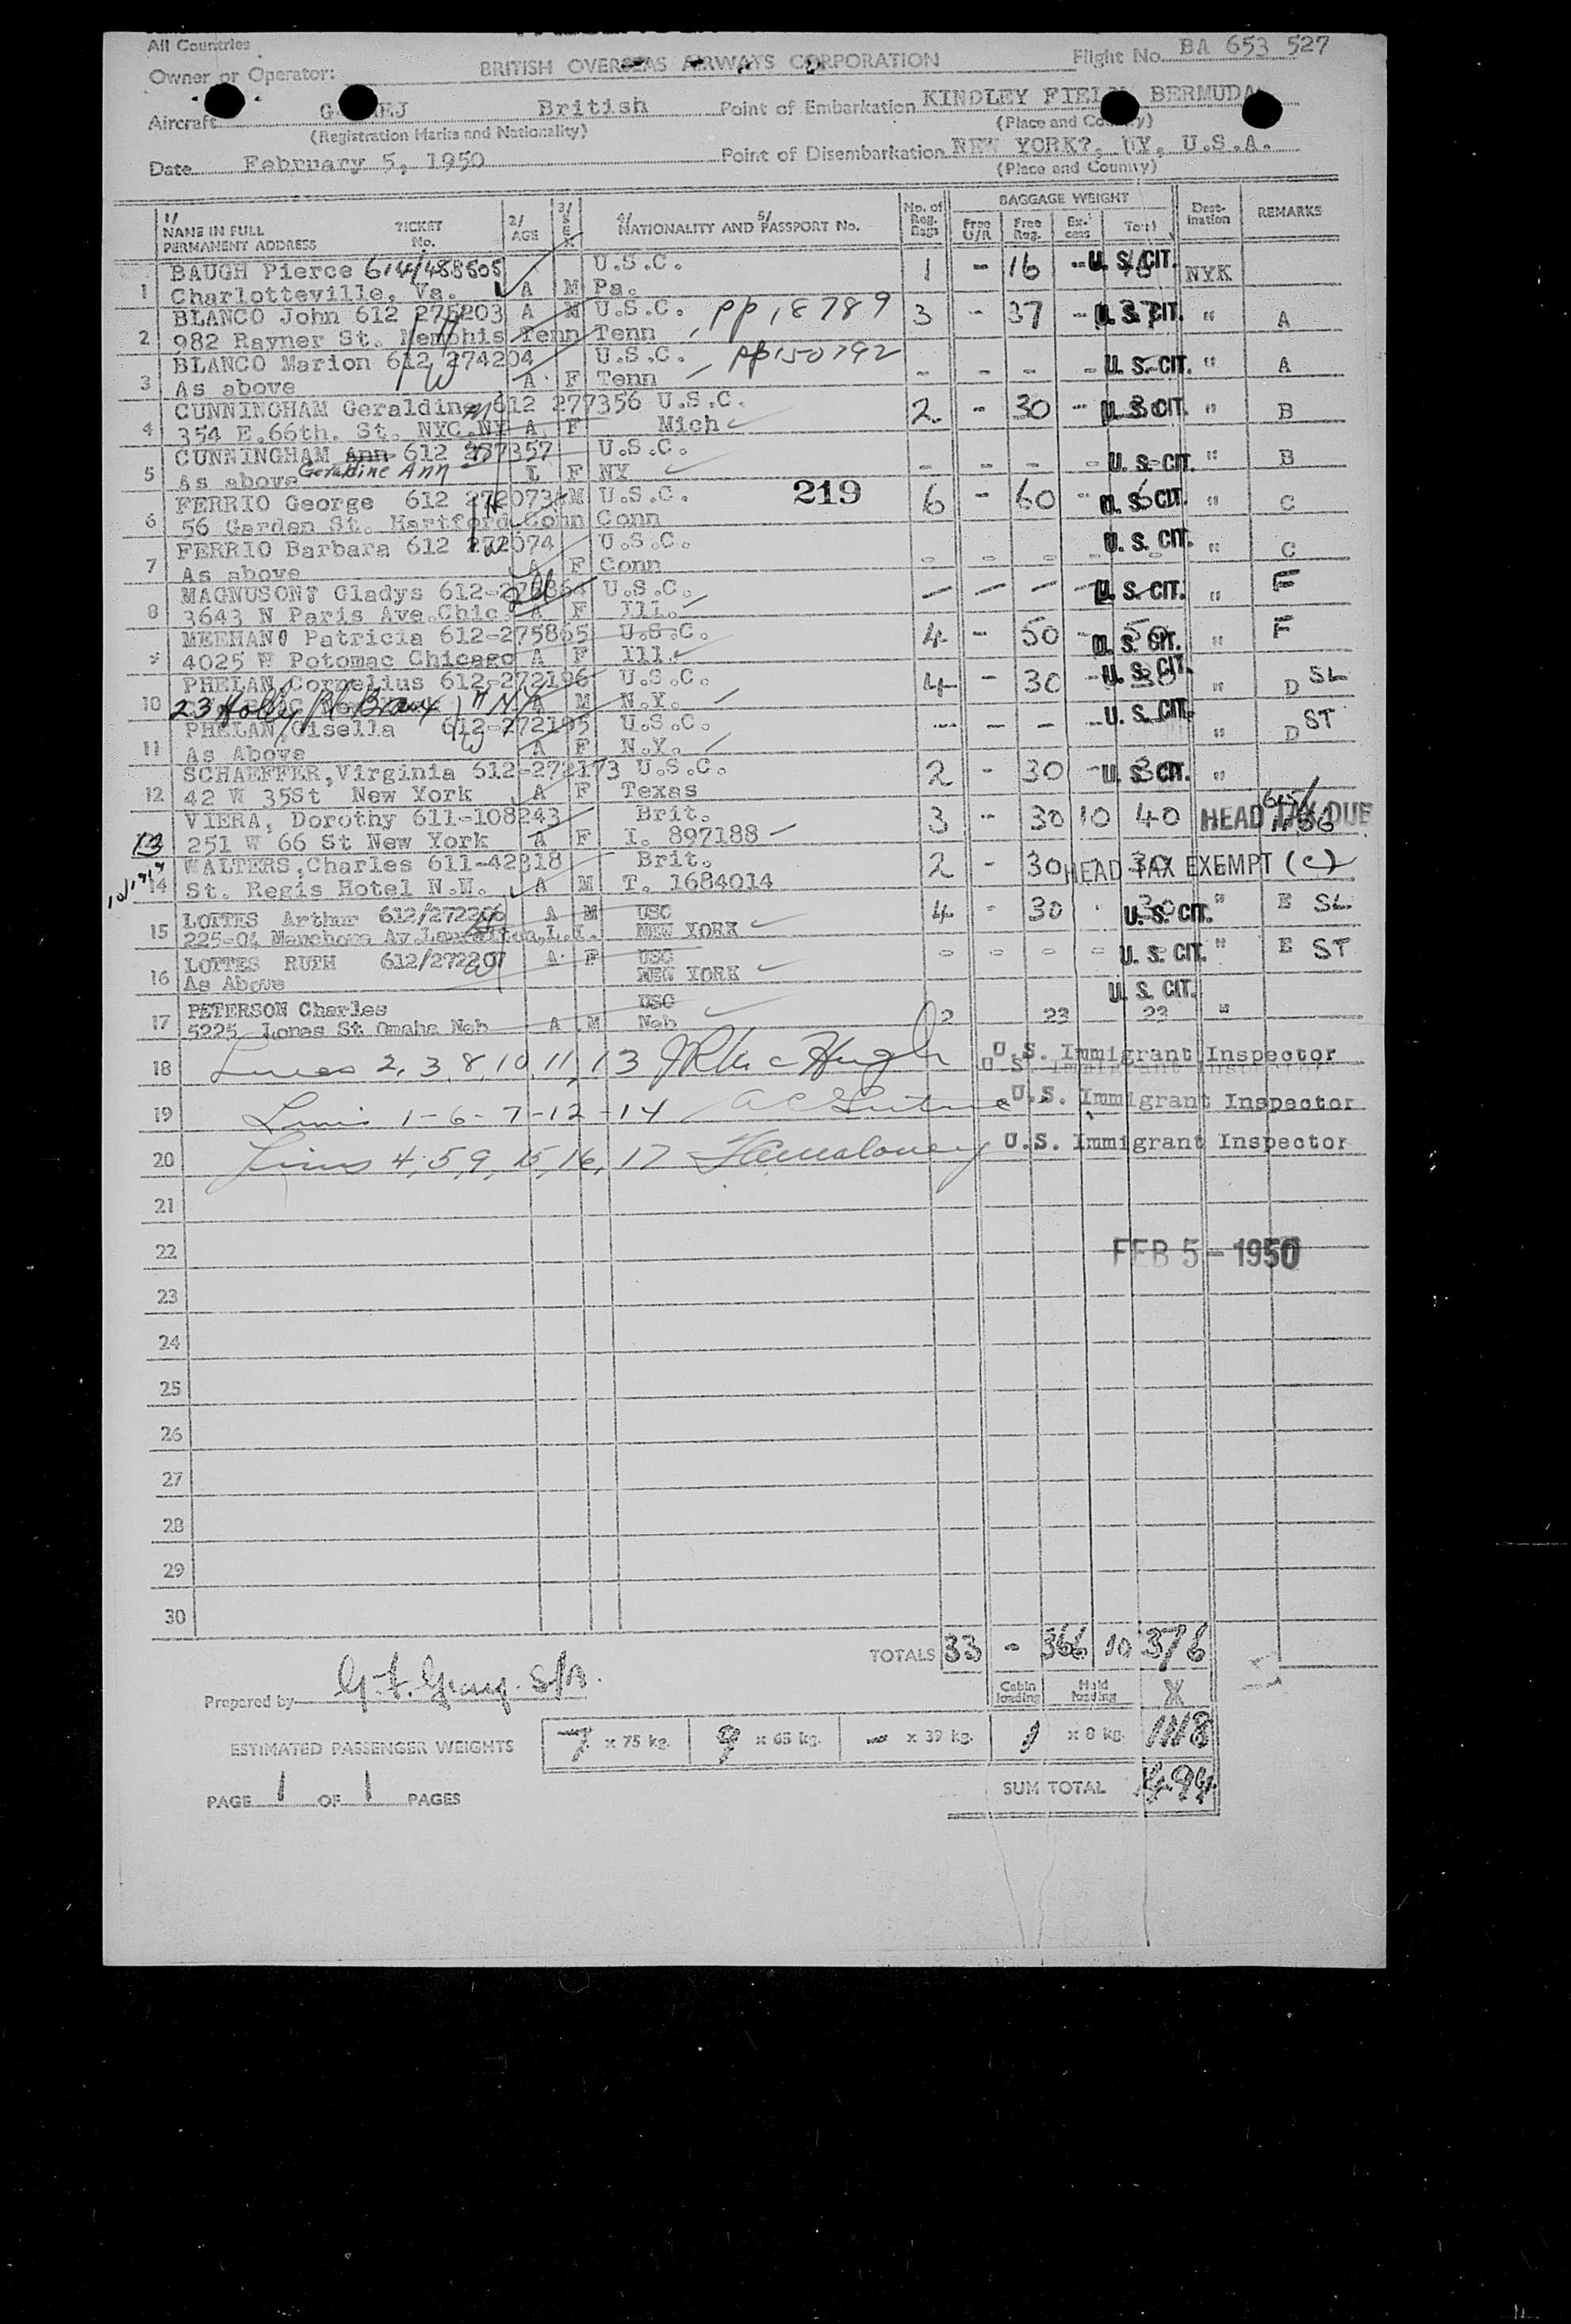 All Countries
Owner or Operator: BRITISH OVERSEAS AIRWAYS CORPORATION Flight No. BA 653 527
Aircraft British Point of Embarkation KINDLEY FIELD BERMUDA
(Registration Marks and Nationality) (Place and Country)
Date February 5, 1950 Point of Disembarkation NEW YORK?, NY, U.S.A.
(Place and Country)
1/ NAME IN FULL PERMANENT ADDRESS TICKET No. 2/ AGE 3/ SEX 4/ NATIONALITY AND 5/ PASSPORT No. No. of Reg. Bags BAGGAGE WEIGHT Free U/R Free Reg. Excess Total Destination REMARKS
BAUGH Pierce 614/488505 U.S.C. 1 - 16 - U. S. CIT. NYK
1 Charlotteville, Va. A M Pa.
BLANCO John 612 275203 A M U.S.C. pp 18789 3 - 37 - 37 U. S. CIT. " A
2 982 Rayner St. Memphis Tenn Tenn
BLANCO Marion 612 274204 U.S.C. pp150792 - - - - U. S. CIT. " A
3 As above A F Tenn
CUNNINGHAM Geraldine 612 277356 U.S.C. 2 - 30 - 30 U. S. CIT. " B
4 354 E.66th. St. NYC.NY A F Mich
CUNNINGHAM Ann 612 277357 U.S.C. - - - - U. S. CIT. " B
5 As above Geraldine Ann I F NY
FERRIO George 612 272073 M U.S.C. 219 6 - 60 - 60 U. S. CIT. " C
6 56 Garden St. Hartford Conn Conn
FERRIO Barbara 612 272074 U.S.C. - - - - U. S. CIT. " C
7 As above A F Conn
MAGNUSON Gladys 612-275864 U.S.C. - - - - U. S. CIT. " F
8 3643 N Paris Ave.Chic. A F Ill.
MEEHAN Patricia 612-275865 U.S.C. 4 - 50 - 50 U. S. CIT. " F
4025 W Potomac Chicago A F Ill.
PHELAN Cornelius 612-272196 U.S.C. 4 - 30 - 30 U. S. CIT. " D SL
10 23 Holly Pl Bronx NY A M N.Y.
PHELAN, Gisella 612-272195 U.S.C. - - - - U. S. CIT. " D ST
11 As Above A F N.Y.
SCHAEFFER,Virginia 612-272173 U.S.C. 2 - 30 - 30 U. S. CIT. "
12 42 W 35St New York A F Texas
VIERA, Dorothy 611-108243 Brit. 3 - 30 10 40 HEAD TAX DUE
13 251 W 66 St New York A F I. 897188
WALTERS,Charles 611-42318 Brit. 2 - 30 30 HEAD TAX EXEMPT (c)
14 St. Regis Hotel N.Y. A M T. 1684014
LOTTES Arthur 612/272206 A M USC 4 - 30 - 30 U. S. CIT. " E SL
15 NEW YORK
LOTTES RUTH 612/272207 A F USC - - - - U. S. CIT. " E ST
16 As Above NEW YORK
PETERSON Charles USC U. S. CIT.
17 5225 Jones St Omaha Neb A M Neb 2 23 23 "
18 Lines 2, 3, 8, 10, 11, 13 U.S. Immigrant Inspector
19 Lines 1-6-7-12-14 U.S. Immigrant Inspector
20 Lines 4, 5, 9, 15, 16, 17 U.S. Immigrant Inspector
21
22 FEB 5 - 1950
23
24
25
26
27
28
29
30
TOTALS 33 - 366 10 376
Prepared by Cabin loading Hold loading
ESTIMATED PASSENGER WEIGHTS 7 x 75 kg. 9 x 65 kg. - x 39 kg. 1 x 8 kg. 1118
PAGE 1 OF 1 PAGES SUM TOTAL 1494